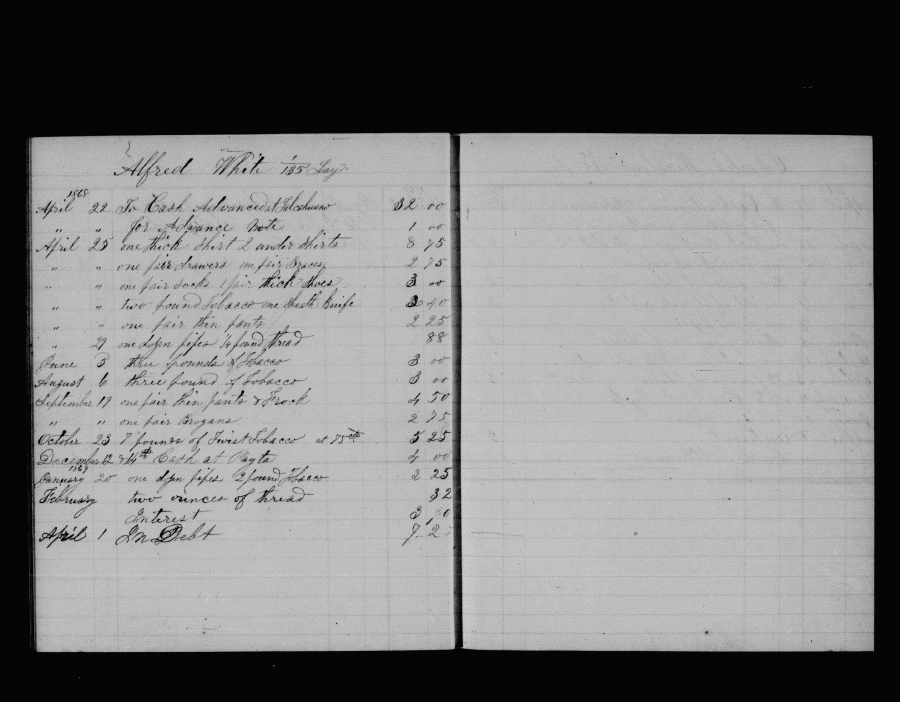 Alfred White 1/135 Lay
1868
April 22 To Cash Advanced at Talcahuano 32 00
" " for Advance Note 1 00
April 25 one thick Shirt 2 under Shirts 8 75
" " one pair drawers one pair Braces 2 75
" " one pair Socks 1 pair thick Shoes 3 00
" " two pound Tobaco one Sheath Knife 40
" " one pair thin pants 2 25
" 29 one dozen pipes 1/4 pound thread 88
June 3 three pounds of Tobacco 3 00
August 6 three pound of Tobacco 3 00
September 19 one pair thin pants & Frock 4 50
" " one pair Brogans 2 75
October 23 7 pounds of Twist Tobacco at 75 cts 5 25
December 12 & 14th Cash at Payta 4 00
1869
January 20 one dozen pipes 2 pound Tobacco 2 25
February two ounces of thread 32
Interest 3
April 1 In Debt